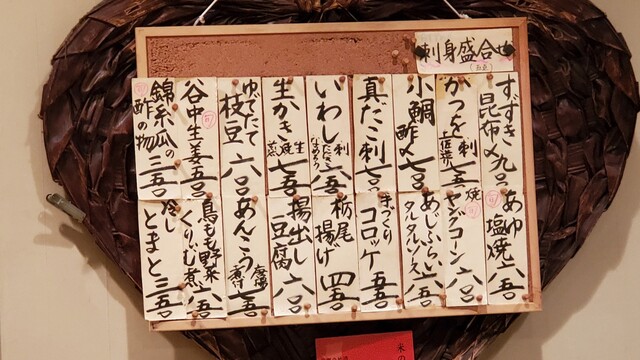 刺身盛合せ
(五点)
すずき昆布〆九〇〇
かつを刺
小鯛酢〆七〇〇
真だこ刺七〇〇
いわし刺
たたき
なめろう
六五〇
生かき生
焼
七五〇
ゆでたて枝豆六〇〇
谷中生姜五五〇
錦糸瓜の酢の物三五〇
あゆ塩焼六五〇
焼ヤングコーン六〇〇
あじふらい
タルタルソース
八五〇
手づくりコロッケ五五〇
栃尾揚げ四五〇
揚出し豆腐六〇〇
あんこう唐揚
煮付
鳥もも野菜くりーむ煮六五〇
冷しとまと三五〇
米の